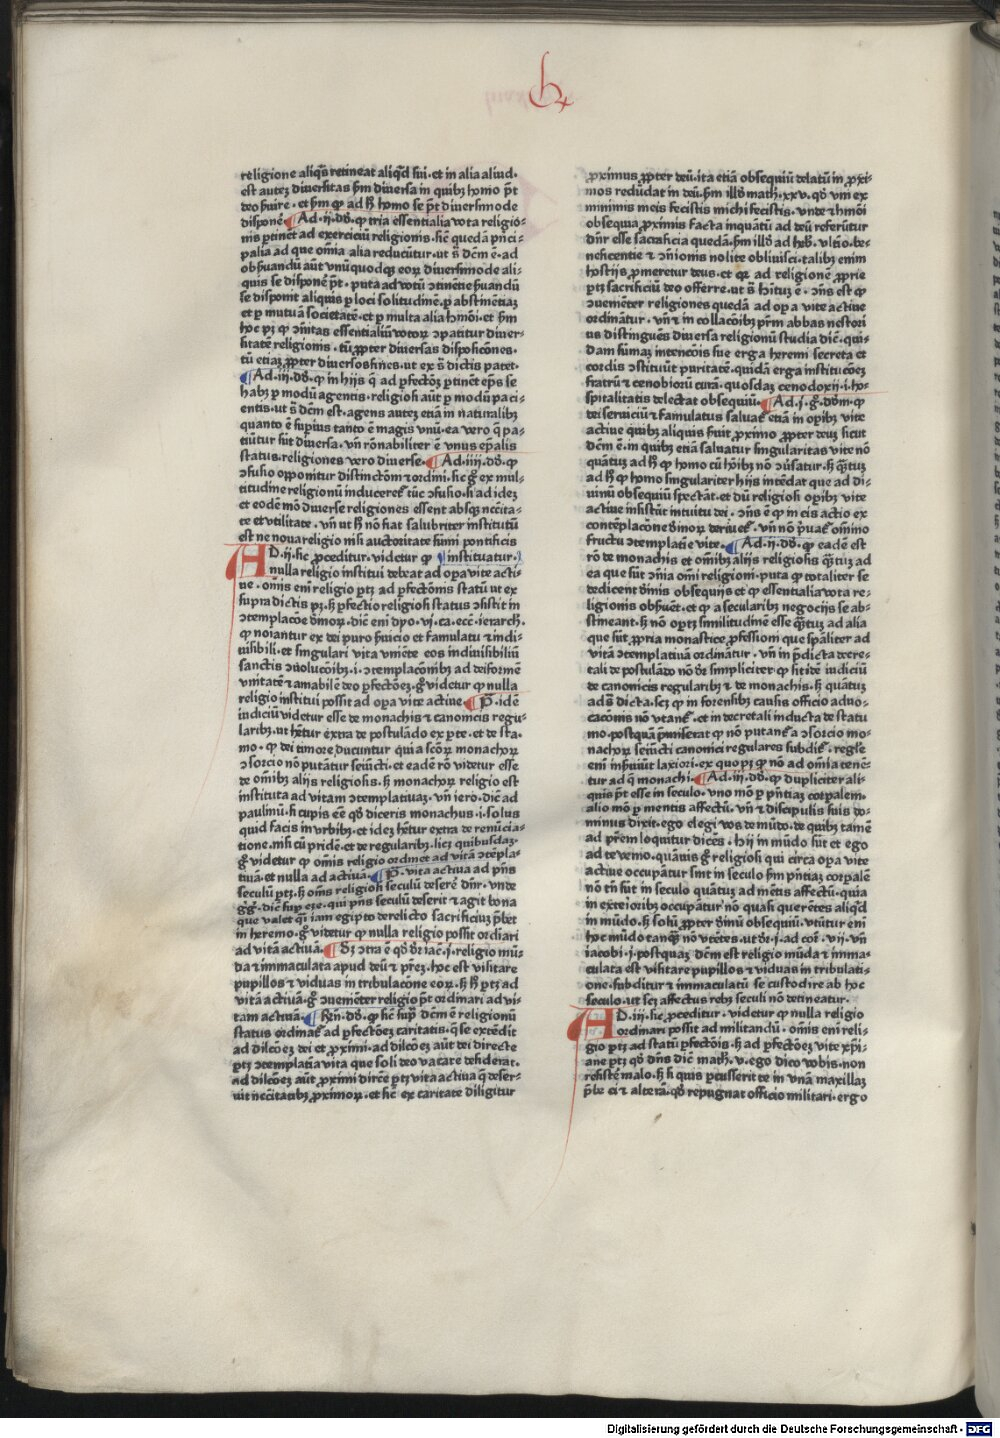 religione aliqͥs retineat aliqͥd sui · et in alia aliud ·
est autez diuersitas ẜm diuersa in quibꝫ homo pͭt
deo ẜuire · et ẜm ꝙ ad hͦ homo se pͭt diuersimode
disponē Ad · ij · dō · ꝙ tria essentialia vota religio⸗
nis ꝑtinēt ad exerciciū religionis · sic̄ quedā pͥnci⸗
palia ad que oīmia alia reducūtur · ut s̄ dcm̄ ē · ad
obẜuandū aūt vnūquodqꝫ eoꝝ diuersimode ali⸗
quis se disponē pͭt · puta ad votū ꝯtinētie ẜuandū
se disponit aliquis ꝑ loci solitudinē · ꝑ abstinētiaꝫ
et ꝑ mutuā societatē · et ꝑ multa alia hmōi · et ẜm
hoc pꝫ ꝙ ꝯītas essentialiū votoꝝ ꝯpatitur diuer⸗
sitatē religionis · tū ꝓpter diuersas dispositōnes ·
tū etiaꝫ ꝓpter diuersos fines · ut ex s̄ dictis patet ·
Ad · iij · dō · ꝙ in hijs q̄ ad ꝑfectōꝫ ꝑtinēt ep̄s se
habꝫ ꝑ modū agentis · religiosi aūt ꝑ modū paci⸗
entis · ut s̄ dcm̄ est · agens autez etiā in naturalibꝫ
quanto ē supius tanto ē magis vnū · ea vero q̄ pa⸗
tiūtur sūt diuersa · vn̄ rōnabiliter ē vnus ep̄alis
status · religiones vero diuerse · Ad · iiij · dō · ꝙ
ꝯfusio opponitur distinctōni ⁊ ordini · sic̄ gͦ ex mul⸗
titudine religionū induceret᷑ tūc ꝯfusio · si ad ideꝫ
et eodē mō diuerse religiones essent absqꝫ nccita⸗
te et vtilitate · vn̄ ut hͦ nō fiat salubriter institutū
est ne noua religio nisi auctoritate sūmi pontificis
AD · ij · sic ꝓceditur · videtur ꝙ instituatur ·
nulla religio institui debeat ad oꝑa vite acti⸗
ue · oīnis eni religio ꝑtꝫ ad ꝑfectōnis statū ut ex
supra dictis pꝫ · hꝫ ꝑfectio religiosi status ꝯsistit in
ꝯtemplacōe diuinoꝝ · dic̄ eni dyo · vi · ca · ecc̄e · ierarch ·
ꝙ noīantur ex dei puro ẜuicio et famulatu ⁊ indi⸗
uisibili · et singulari vita vniēte eos indiuisibiliū
sanctis ꝯuolucōibꝫ · i · ꝯtemplacōnibꝫ ad deiformē
vnitatē ⁊ amabilē deo ꝑfectōeꝫ · gͦ videtur ꝙ nulla
religio institui possit ad oꝑa vite actiue P̄ · idē
iudiciū videtur esse de monachis ⁊ canonicis regu⸗
laribꝫ · ut hētur extra de postulādo ex ꝑte · et de sta⸗
mo · ꝙ dei timore ducuntur qui a scōꝝ monachoꝝ
ꝯsorcio nō putātur seiūcti · et eadē rō videtur esse
de oīnibꝫ alijs religiosis · hꝫ monachoꝝ religio est
instituta ad vitam ꝯtemplatiuaꝫ · vn̄ iero · dic̄ ad
paulinū · si cupis eē qͦd diceris monachus · i · solus
quid facis in vrbibꝫ · et ideꝫ hētur extra de renūcia⸗
tione · nisi cū pridē · et de regularibꝫ · licꝫ quibusdaꝫ·
gͦ videtur ꝙ oīmis religio ordinet᷑ ad vitā ꝯtēpla⸗
tiuā · et nulla ad actiuā · P̄ · vita actiua ad pn̄s
seculū ꝑtꝫ · hꝫ oīms religiosi seculū deserē dn̄r · vnde
gͥgͥ · dic̄ suꝑ eze · qui pn̄s seculū deserit ⁊ agit bona
que valet qͣsi iam egipto derelicto sacrificiuꝫ p̄bet
in heremo · gͦ videtur ꝙ nulla religio possit ordīari
ad vitā actiuā · Sꝫ ꝯtra ē qͦd dr̄ iac̄ · j · religio mū⸗
da ⁊ immaculata apud deū ⁊ pr̄eꝫ · hoc est visitare
pupillos ⁊ viduas in tribulacōne eoꝝ · hꝫ hͦ ꝑtꝫ ad
vitā actiuā · gͦ ꝯueniēter religio pͭt ordinari ad vi⸗
tam actiuā · Rn̄ · dō · ꝙ sic̄ supͥ dcm̄ ē religionū
status ordinat᷑ ad ꝑfectōeꝫ caritatis · q̄ se extēdit
ad dilcōeꝫ dei et ꝓximi · ad dilcōeꝫ aūt dei directe
ꝑtꝫ ꝯtemplatiua vita que soli deo vacare desiderat ·
ad dilcōeꝫ aūt ꝓximi dircē ꝑtꝫ vita actiua q̄ deser⸗
uit nccitatibꝫ ꝓximoꝝ · et sic̄ ex caritate diligitur
ꝓximus ꝓpter deū · ita etiā obsequiū delatū in ꝓxi⸗
mos redūdat in deū · ẜm illud math · xxv · qͦd vni ex
minimis meis fecistis michi fecistis · vnde ⁊ hmōi
obsequia ꝓximis facta inquātū ad deū referūtur
dn̄r esse sacrificia quedā · ẜm illō ad heb̄ · vltīo · be⸗
neficentie ⁊ ꝯīonis nolite obliuisci · talibꝫ enim
hostijs ꝓmeretur deus · et qꝛ ad religionē ꝓprie
ꝑtꝫ sacrificiū deo offerre · ut s̄ hītuꝫ ē · ꝯn̄s est ꝙ
ꝯueniēter religiones quedā ad oꝑa vite actiue
ordinātur · vn̄ ⁊ in collacōibꝫ pr̄m abbas nestori
us distinguēs diuersa religionū studia dic̄ · qui⸗
dam sūmaꝫ intencōis sue erga heremi secreta et
cordis ꝯstituūt puritatē · quidā erga institucōeꝫ
fratrū ⁊ cenobiorū curā · quosdaꝫ cenodoxij · i · ho⸗
spitalitatis delectat obsequiū · Ad · j · gͦ · dōm · ꝙ
dei seruiciū ⁊ famulatus saluat᷑ etiā in oꝑibꝫ vite
actiue quibꝫ aliquis ẜuit ꝓximo ꝓpter deuꝫ sicut
dcm̄ ē · in quibꝫ etiā saluatur singularitas vite nō
quātuꝫ ad hͦ ꝙ homo cū hōibꝫ nō ꝯuersatur · hꝫ qͣtuꝫ
ad hͦ ꝙ homo singulariter hijs intēdat que ad di⸗
uinū obsequiū spectāt · et dū religiosi oꝑibꝫ vite
actiue insistūt intuitu dei · ꝯn̄s ē ꝙ in eis actio ex
contēplacōne diuinoꝝ deriuet᷑ · vn̄ nō pͥuāt᷑ omīno
fructu ꝯtemplatīe vite · Ad · ij · dō · ꝙ eadē est
rō de monachis et oīmibꝫ alijs religiosis qͣtuꝫ ad
ea que sūt ꝯīa oīmi religioni · puta ꝙ totaliter se
dedicent diuinis obsequijs et ꝙ essentialia vota re⸗
ligionis obẜuēt · et ꝙ a secularibꝫ negocijs se ab⸗
stineant · hꝫ nō oꝑtꝫ similitudinē esse qͣtuꝫ ad alia
que sūt ꝓpria monastice ꝓfessioni que spāliter ad
vitā ꝯtemplatiuā ordinātur · vn̄ in p̄dicta decre⸗
tali de postulādo nō dr̄ simpliciter ꝙ sit idē iudiciū
de canonicis regularibꝫ ⁊ de monachis · hꝫ quātuꝫ
ad s̄ dicta · scꝫ ꝙ in forensibꝫ causis officio aduo⸗
cacōnis nō vtant᷑ · et in decretali inducta de statu
mo · postquā p̄miserat ꝙ nō putant᷑ a ꝯsorcio mo⸗
nachoꝝ seiūcti canonici regulares subdit᷑ · regule
eni inẜuiūt laxiori · ex quo pꝫ ꝙ nō ad oīmia tenē⸗
tur ad q̄ monachi · Ad · iij · dō · ꝙ dupliciter ali⸗
quis pͭt esse in seculo · vno mō ꝑ pn̄tiaꝫ corꝑalem ·
alio mō ꝑ mentis affectū · vn̄ ⁊ discipulis suis do⸗
minus dixit · ego elegi vos de mūdo · de quibꝫ tamē
ad pr̄em loquitur dicēs · hij in mūdo sūt et ego
ad te venio · quāuis gͦ religiosi qui circa oꝑa vite
actiue occupātur sint in seculo ẜm pn̄tiaꝫ corꝑalē
nō tn̄ sūt in seculo quātuꝫ ad mētis affectū · quia
in exterioribꝫ occupātur nō quasi querētes aliqͥd
in mūdo · hꝫ solū ꝓpter diuinū obsequiū · vtūtur eni
hoc mūdo tanqͣꝫ nō vtētes · ut dr̄ · j · ad cor̄ · vij · vn̄
iacobi · j · postquaꝫ dcm̄ est religio mūda ⁊ imma⸗
culata est visitare pupillos ⁊ viduas in tribulati⸗
one · subditur ⁊ immaculatū se custodire ab hoc
seculo · ut scꝫ affectus rebꝫ seculi nō detineatur ·
AD · iij · sic ꝓceditur · videtur ꝙ nulla religio
ordinari possit ad militandū · oīmis eni reli⸗
gio ꝑtꝫ ad statū ꝑfectōis · hꝫ ad ꝑfectōeꝫ vite xp̄i⸗
ane ꝑtꝫ qͦd dn̄s dic̄ math · v · ego dico vobis · non
resistē malo · hꝫ si quis ꝑcusserit te in vnā maxillaꝫ
p̄be ei ⁊ alterā · qͦd repugnat officio militari · ergo
Digitalisierung gefördert durch die Deutsche Forschungsgemeinschaft - DFG